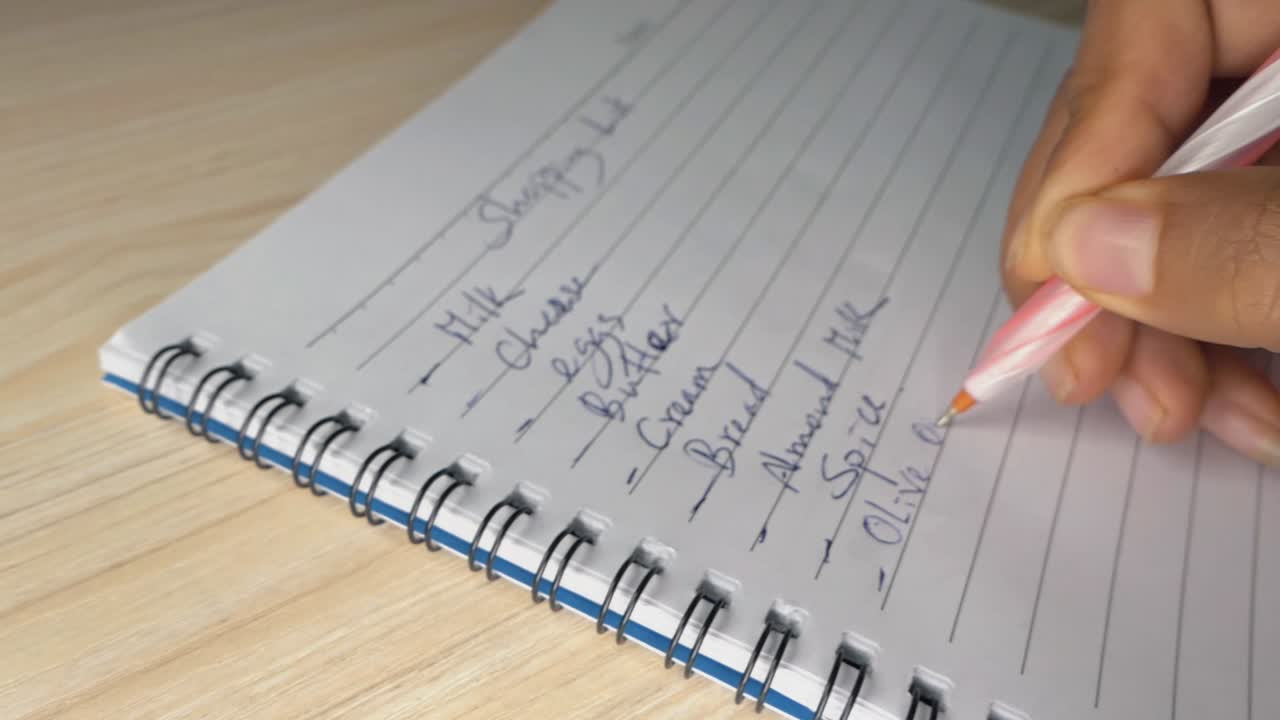 Shopping List
- Milk
- Cheese
- eggs
- Butter
- Cream
- Bread
- Almond Milk
- Spice
- Olive O